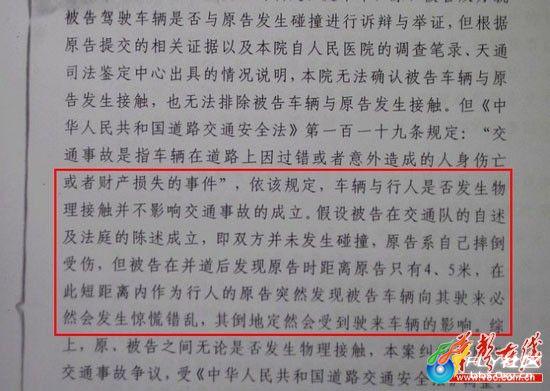 被告驾驶车辆是否与原告发生碰撞进行诉辩与举证，但根据
原告提交的相关证据以及本院自人民医院的调查笔录、天通
司法鉴定中心出具的情况说明，本院无法确认被告车辆与原
告发生接触，也无法排除被告车辆与原告发生接触。但《中
华人民共和国道路交通安全法》第一百一十九条规定：“交
通事故是指车辆在道路上因过错或者意外造成的人身伤亡
或者财产损失的事件”，依该规定，车辆与行人是否发生物
理接触并不影响交通事故的成立。假设被告在交通队的自述
及法庭的陈述成立，即双方并未发生碰撞，原告系自己摔倒
受伤，但被告在并道后发现原告时距离原告只有4、5米，在
此短距离内作为行人的原告突然发现被告车辆向其驶来必
然会发生惊慌错乱，其倒地定然会受到驶来车辆的影响。综
上，原、被告之间无论是否发生物理接触，本案纠
交通事故争议，受《中华人民共和国道路交通安全